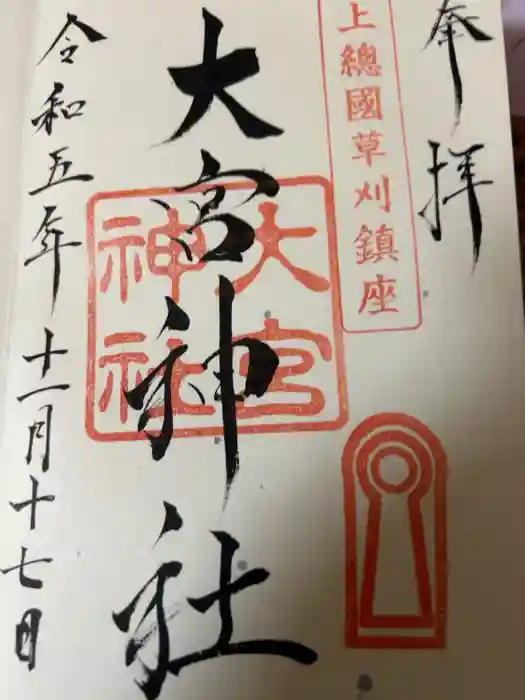 奉拝
上總國草刈鎮座
大宮神社
大宮神社
令和五年十一月十七日